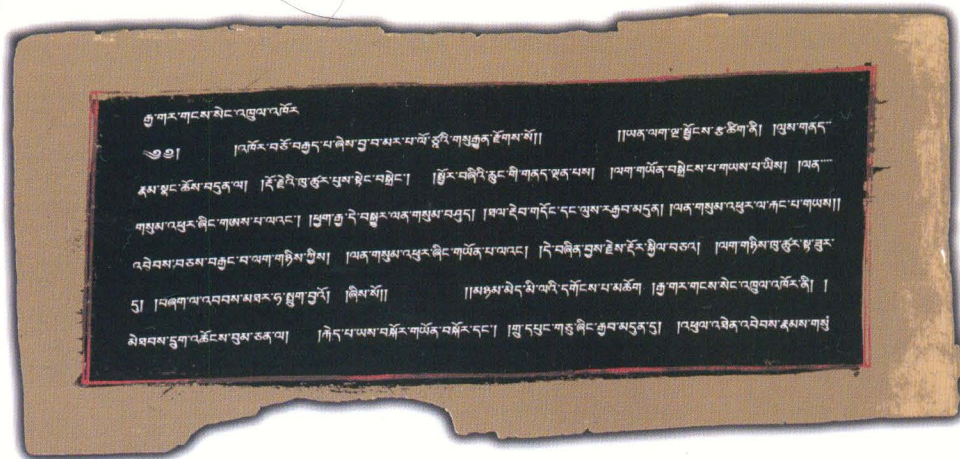 རྒྱ་གར་གངས་སེང་འཁྲུལ་འཁོར
༄༅། །འཁོར་བཅོ་བརྒྱད་པ་ཞེས་བྱ་བ་མར་པ་ལོ་ཙཱའི་གསུང་རྒྱན་རྫོགས་སོ།། །།ཡན་ལག་ལྔ་སྦྱོངས་རྩ་ཚིག་ནི། །ལུས་གནད་
རྣམ་སྣང་ཆོས་བདུན་ལ། །རྡོ་རྗེའི་ཁུ་ཚུར་པུས་སྟེང་བསྒྲེང་། །སྦྱོར་བཞིའི་རླུང་གི་གནད་ལྡན་པས། །ལག་གཡོན་བསྒྲེངས་པ་གཡས་པ་ཡིས། །ལན་
གསུམ་འཕུར་ཞིང་གཨས་པ་ལའང་། །ཕྱག་རྒྱ་དེ་བསྒྱུར་ལན་གསུམ་བཤུད། །ཐལ་རྡེབ་གདོང་དང་ལུས་རྒབ་མདུན། །ལན་གསུམ་འཕུར་ལ་རྐང་པ་གཡས།།
འབེབས་བཅས་བརྐྱང་བ་ལག་གཉིས་ཀྱིས། །ལན་གསུམ་འཕུར་ཞིང་གཡོན་པ་ལའང་། །དེ་བཞིན་བྱས་རྗེས་རྡོར་སྐྱིལ་བཅའ། །ལག་གཉིས་ཁུ་ཚུར་སྟ་ཟུར་
དུ། །བཞག་ལ་འབབས་མཐར་ཧ་སྨུག་བྱའོ། །ཞེས་སོ།། །།མཉམ་མེད་མི་ལའི་དགོངས་པ་མཆོག །རྒྱ་གར་གངས་སེང་འཁྲུལ་འཁོར་ནི། །
མེཐབས་དྲུག་འཚོངས་བུམ་ཅན་ལ། །རྐེད་པ་ཡས་བསྐོར་གཡོན་བསྐོར་དང་། །གྲུ་དཔུང་གཅུ་ཞིང་རྒབ་མདུན་དུ། །འཕུལ་འཐེན་འབེབས་རྣམས་གསུཾ